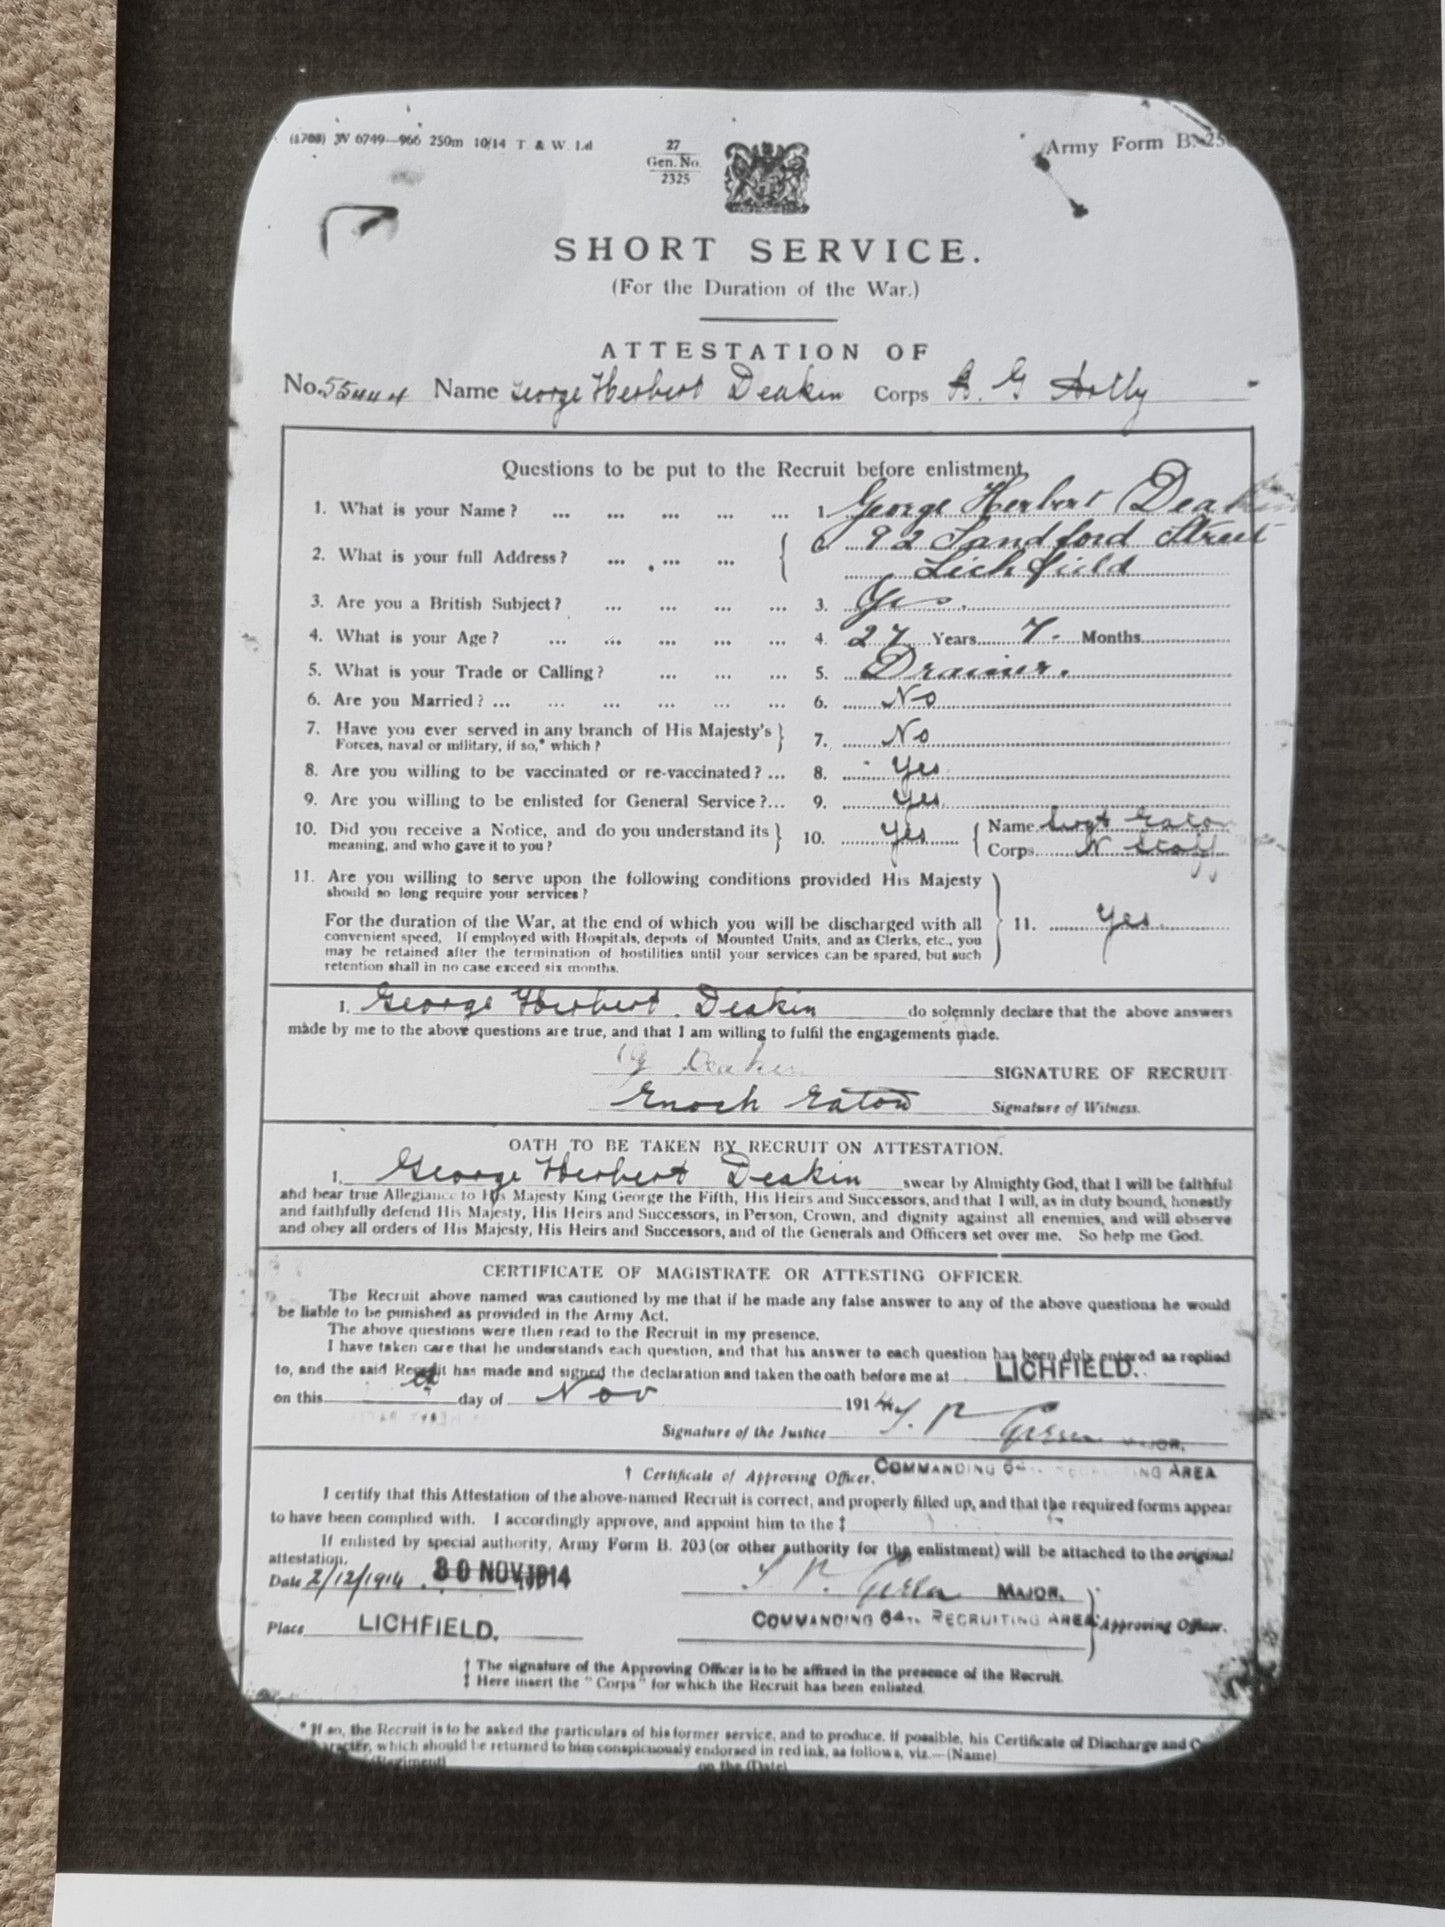 (1708) W 6749—966 250m 10/14 T. & W. Ld
27
Gen. No.
2325
Army Form B. 25
SHORT SERVICE.
(For the Duration of the War.)
ATTESTATION OF
No. 55444 Name George Herbert Deakin Corps R. G. Artlly
Questions to be put to the Recruit before enlistment.
1. What is your Name? ... ... ... ... ... 1. George Herbert Deakin
2. What is your full Address? ... ... ... { 92 Sandford Street
Lichfield
3. Are you a British Subject? ... ... ... ... 3. Yes.
4. What is your Age? ... ... ... ... ... 4. 27 Years 7 Months
5. What is your Trade or Calling? ... ... ... 5. Drainer.
6. Are you Married? ... ... ... ... ... ... 6. No
7. Have you ever served in any branch of His Majesty's } 7. No
Forces, naval or military, if so,* which?
8. Are you willing to be vaccinated or re-vaccinated? ... 8. Yes
9. Are you willing to be enlisted for General Service?... 9. Yes
10. Did you receive a Notice, and do you understand its } 10. Yes { Name Sergt Eaton
meaning, and who gave it to you? Corps N Staff
11. Are you willing to serve upon the following conditions provided His Majesty
should so long require your services?
For the duration of the War, at the end of which you will be discharged with all 11. Yes.
convenient speed. If employed with Hospitals, depots of Mounted Units, and as Clerks, etc., you
may be retained after the termination of hostilities until your services can be spared, but such
retention shall in no case exceed six months.
I, George Herbert Deakin do solemnly declare that the above answers
made by me to the above questions are true, and that I am willing to fulfil the engagements made.
G Deakin SIGNATURE OF RECRUIT
Enoch Eaton Signature of Witness.
OATH TO BE TAKEN BY RECRUIT ON ATTESTATION.
I, George Herbert Deakin swear by Almighty God, that I will be faithful
and bear true Allegiance to His Majesty King George the Fifth, His Heirs and Successors, and that I will, as in duty bound, honestly
and faithfully defend His Majesty, His Heirs and Successors, in Person, Crown, and dignity against all enemies, and will observe
and obey all orders of His Majesty, His Heirs and Successors, and of the Generals and Officers set over me. So help me God.
CERTIFICATE OF MAGISTRATE OR ATTESTING OFFICER.
The Recruit above named was cautioned by me that if he made any false answer to any of the above questions he would
be liable to be punished as provided in the Army Act.
The above questions were then read to the Recruit in my presence.
I have taken care that he understands each question, and that his answer to each question has been duly entered as replied
to, and the said Recruit has made and signed the declaration and taken the oath before me at LICHFIELD.
on this day of Nov 1914
Signature of the Justice MAJOR.
† Certificate of Approving Officer. COMMANDING 64TH RECRUITING AREA
I certify that this Attestation of the above-named Recruit is correct, and properly filled up, and that the required forms appear
to have been complied with. I accordingly approve, and appoint him to the ‡
If enlisted by special authority, Army Form B. 203 (or other authority for the enlistment) will be attached to the original
attestation.
Date 2/12/1914 30 NOV 1914 MAJOR.
COMMANDING 64TH RECRUITING AREA Approving Officer.
Place LICHFIELD.
† The signature of the Approving Officer is to be affixed in the presence of the Recruit.
‡ Here insert the "Corps" for which the Recruit has been enlisted.
* If so, the Recruit is to be asked the particulars of his former service, and to produce, if possible, his Certificate of Discharge and C
aracter, which should be returned to him conspicuously endorsed in red ink, as follows, viz.—(Name)
(Regiment) on the (Date)